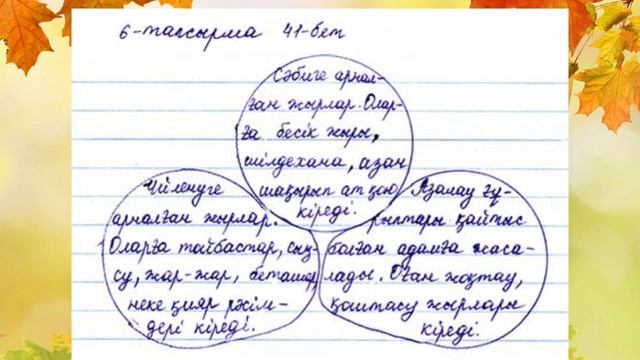 6-тапсырма 41-бет
Сәбиге арнал-
ған жырлар. Олар-
ға бесік жыры,
шілдехана, азан
шақырып ат қою
кіреді.
Үйленуге
арналған жырлар.
Оларға тойбастар, сың-
су, жар-жар, беташар,
неке қияр рәсім-
дері кіреді.
Азалау ғұ-
рыптары қайтыс
болған адамға жаса-
лады. Оған жоқтау,
қоштасу жырлары
кіреді.